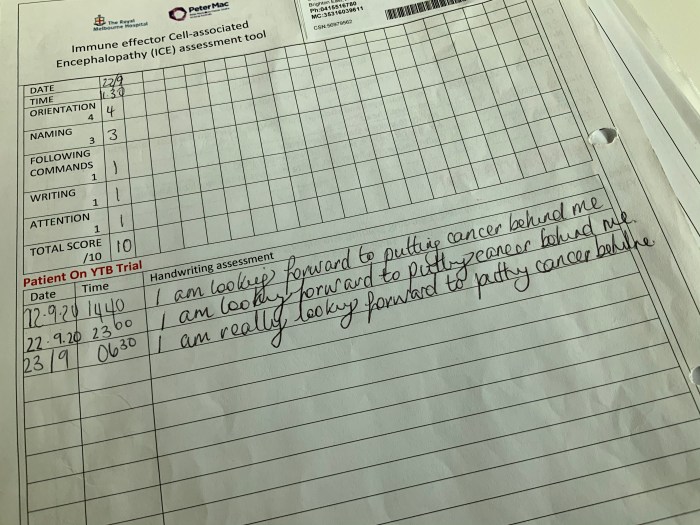 The Royal
Melbourne Hospital
Peter Mac
Immune effector Cell-associated
Encephalopathy (ICE) assessment tool
Ph:0416516780
MC:35316039611
CSN:50979562
DATE 22/9
TIME
ORIENTATION 4 4
NAMING 3 3
FOLLOWING
COMMANDS 1 1
WRITING 1 1
ATTENTION 1 1
TOTAL SCORE
/10 10
Patient On YTB Trial
Date Time Handwriting assessment
22.9.20 1440 I am looking forward to putting cancer behind me
22.9.20 2300 I am looking forward to putting cancer behind me.
23/9 0630 I am really looking forward to putting cancer behind me